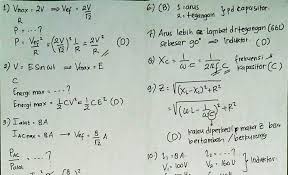 1) Vmax = 2V ⇒ Vef = 2V/√2
R
P = .... ?
P = Vef²/R = (2V/√2)² 1/R = 2V²/R (D)
2) V = E sin ωt ⇒ Vmax = E
C
Energi max = .... ?
Energi max = 1/2 CV² = 1/2 CE² (D)
3) = 8A
IACmax = 8A → Vef = 8/√2 A
PAC = .... ?
6) (B) 1. arus
2. tegangan } pd kapasitor
7) Arus lebih lambat dr tegangan (GGL)
sebesar 90° ⇒ induktor (D)
8) XC = 1/ωC = 1/2πfC → frekuensi kapasitor (C)
9) Z = √(XL - XC)² + R²
= √(ωL - 1/ωC)² + R²
(D) kalau diperbesar, maka Z bisa
bertambah / berkurang
10) I1 = 8A I2 = ... ?
V1 = 100V V2 = 160V } Induktor